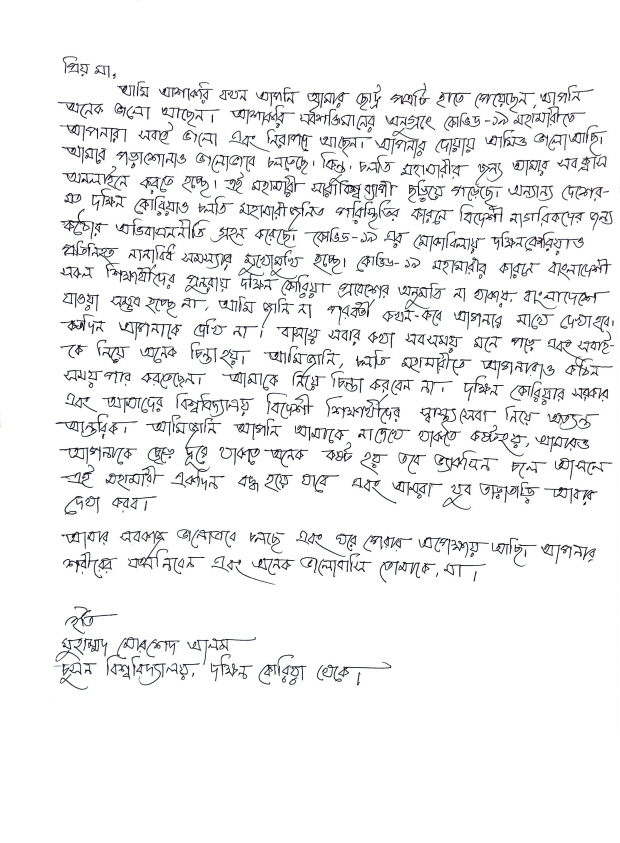 প্রিয় মা,
আমি আশাকরি যখন আপনি আমার ছোট্ট পত্রটি হাতে পেয়েছেন, আপনি
অনেক ভালো আছেন। আশাকরি সর্বশক্তিমানের অনুগ্রহে কোভিড-১৯ মহামারীতে
আপনারা সবাই ভালো এবং নিরাপদ আছেন। আপনার দোয়ায় আমিও ভালোআছি।
আমার পড়াশোনাও ভালোভাবে চলতেছে। কিন্তু চলতি মহামারীর জন্য আমার সব ক্লাস
অনলাইনে করতে হচ্ছে। এই মহামারী সারাবিশ্ব ব্যাপী ছড়িয়ে পড়েছে। অন্যান্য দেশের-
মত দক্ষিন কোরিয়াও চলতি মহামারীজনিত পরিস্থিতির কারনে বিদেশী নাগরিকদের জন্য
কঠোর অভিবাসননীতি গ্রহন করেছে। কোভিড-১৯ এর মোকাবিলায় দক্ষিনকোরিয়াও
প্রতিনিয়ত নানাবিধ সমস্যার মুখোমুখি হচ্ছে। কোভিড-১৯ মহামারীর কারনে বাংলাদেশী
সকল শিক্ষার্থীদের পুনরায় দক্ষিন কোরিয়া প্রবেশের অনুমতি না থাকায়, বাংলাদেশে
যাওয়া সম্ভব হচ্ছে না, আমি জানি না পরবর্তী কখন-কবে আপনার সাথে দেখা হবে।
কতদিন আপনাকে দেখি না। বাসায় সবার কথা সবসময় মনে পড়ে এবং সবাই-
কে নিয়ে অনেক চিন্তা হয়। আমিজানি, চলতি মহামারীতে আপনারাও কঠিন
সময় পার করতেছেন। আমাকে নিয়ে চিন্তা করবেন না। দক্ষিন কোরিয়ার সরকার
এবং আমাদের বিশ্ববিদ্যালয় বিদেশী শিক্ষার্থীদের স্বাস্থ্যসেবা নিয়ে অত্যন্ত
আন্তরিক। আমিজানি আপনি আমাকে নাদেখে থাকতে কষ্টহয়, আমারও
আপনাকে ছেড়ে দূরে থাকতে অনেক কষ্ট হয় তবে
এই মহামারী একদিন বন্ধ হয়ে যাবে এবং আমরা খুব তাড়াতাড়ি আবার
দেখা করব।
আমার সবকাজ ভালোভাবে চলছে এবং ঘরে ফেরার অপেক্ষায় আছি। আপনার
শরীরের যত্ননিবেন এবং অনেক ভালোবাসি তোমাকে, মা।
ইতি
মুহাম্মদ মোরশেদ আলম
চুসন বিশ্ববিদ্যালয়, দক্ষিন কোরিয়া থেকে।